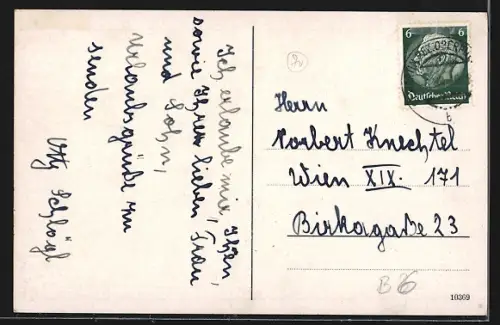 Ich erlaube mir, Ihnen,
sowie Ihrer lieben Frau
und Sohn,
Urlaubsgrüße zu
senden
Schlögl
6 6
Deutsches Reich
b
Herrn
Norbert Knechtel
Wien XIX. 171
Birkagaße 23
B 26
10369